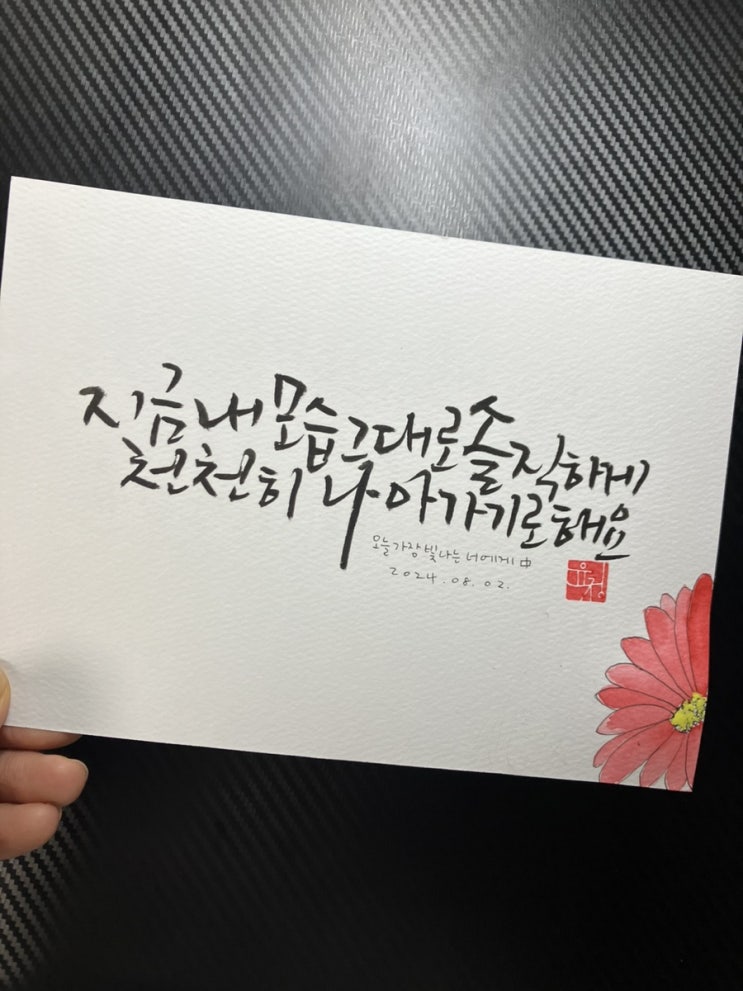 지금 내 모습 그대로 솔직하게
천천히 나아가기로 해요
오늘 가장 빛나는 너에게 中
2024.08.02.
유정